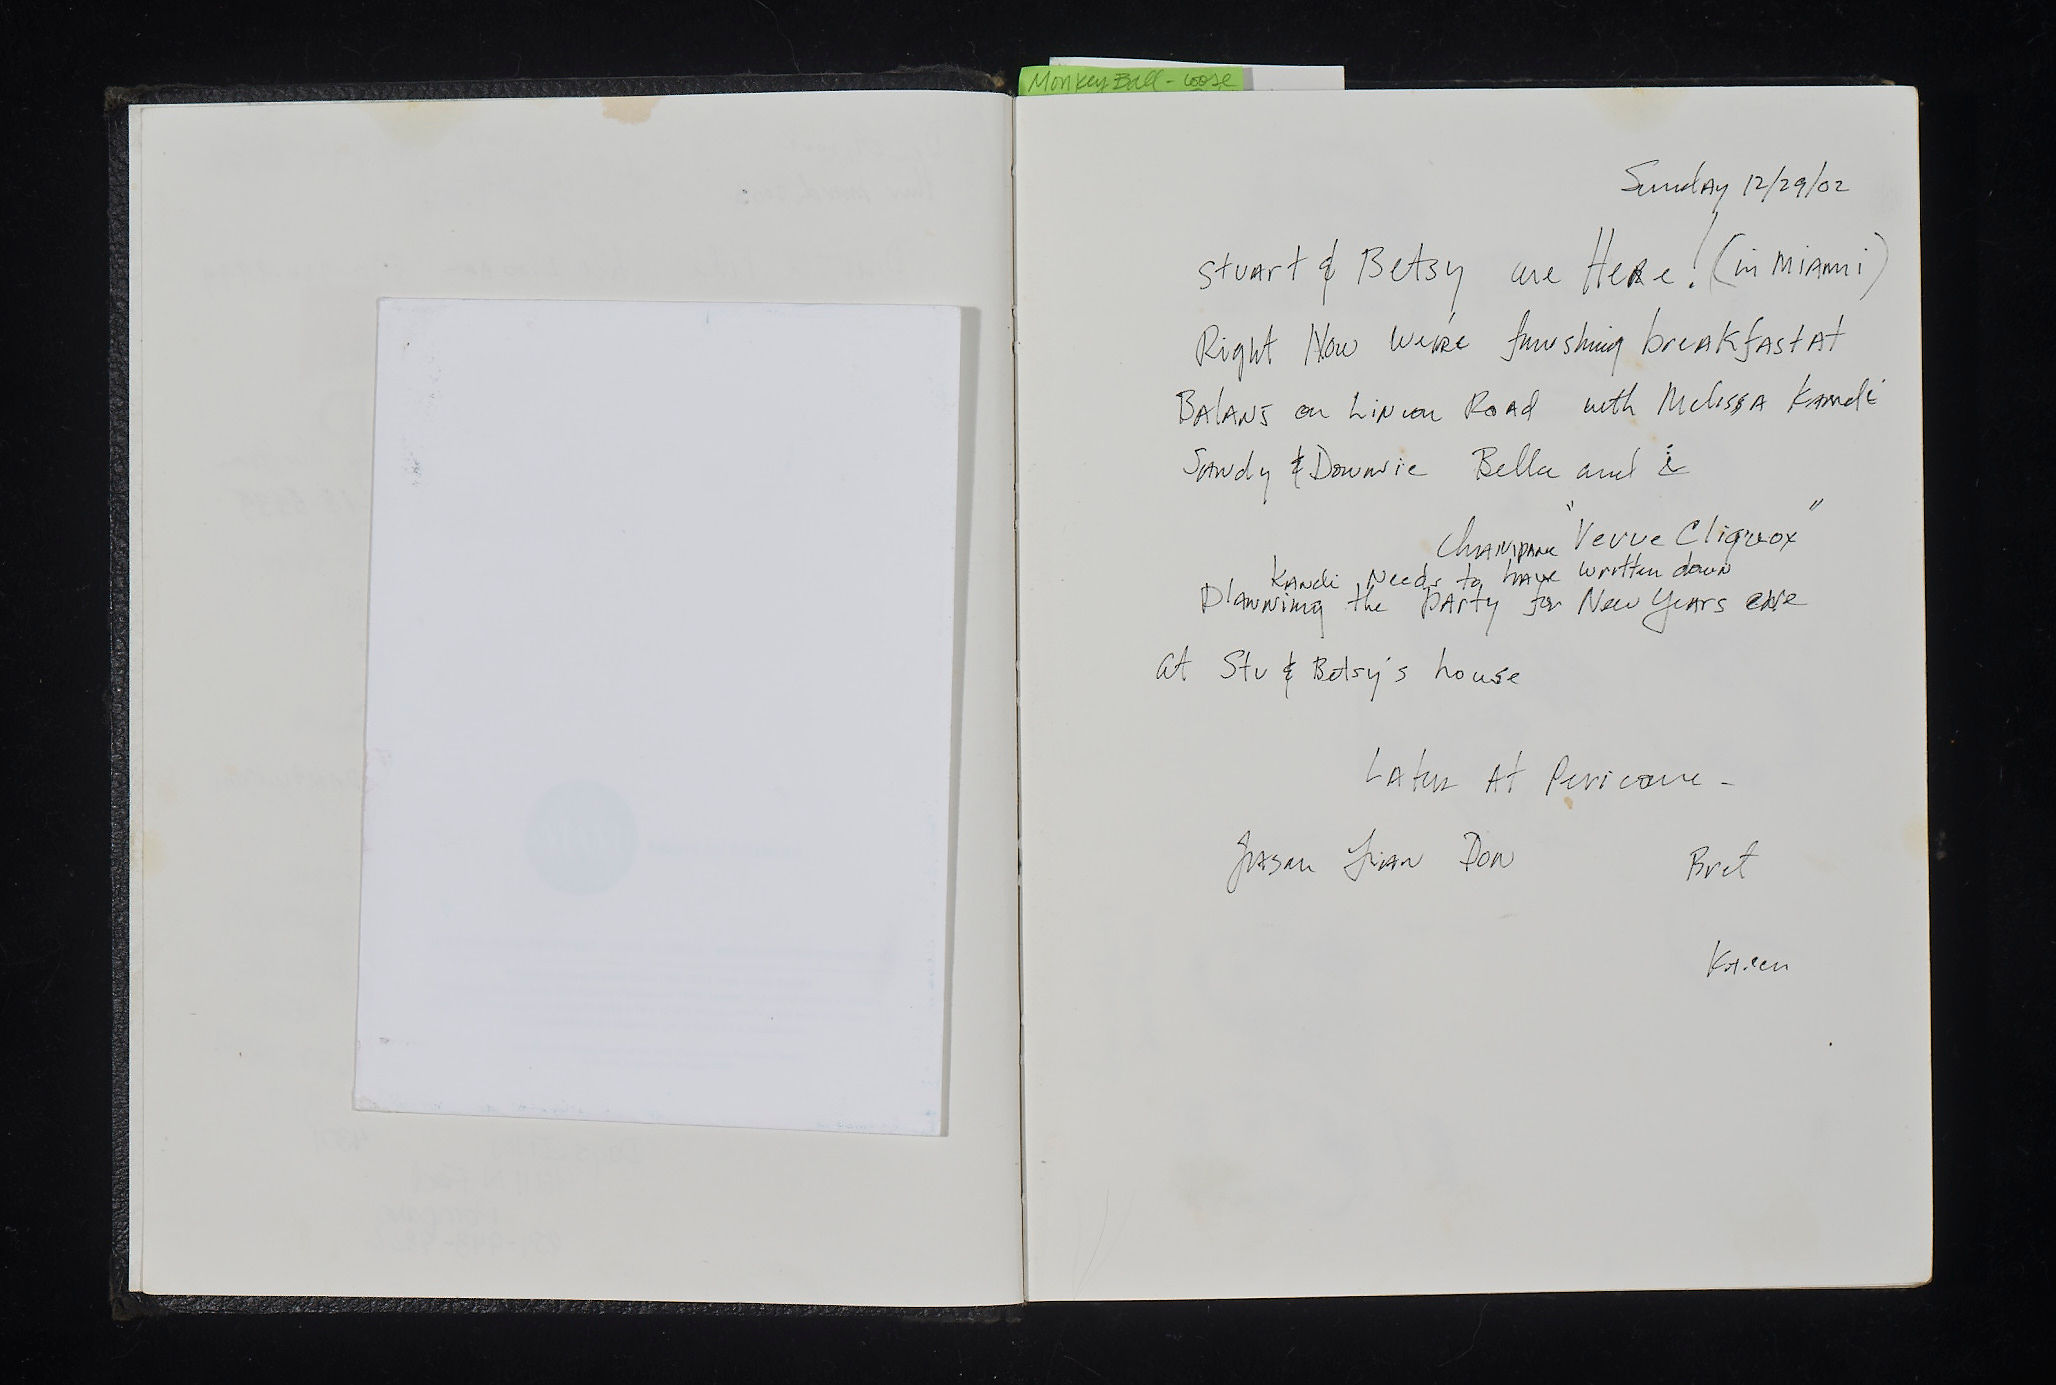 Monkey Ball - loose
Sunday 12/29/02
Stuart & Betsy are Here! (in Miami)
Right Now we're finishing breakfast at
Balans on Lincon Road with Melissa Kandi
Sandy & Downie Bella and i
Champane "Verve Cliqvox"
Kandi Needs to have written down
Planning the party for New Years eve
at Stu & Betsy's house
Later At Pericone -
Jason Don Bret
Kareen